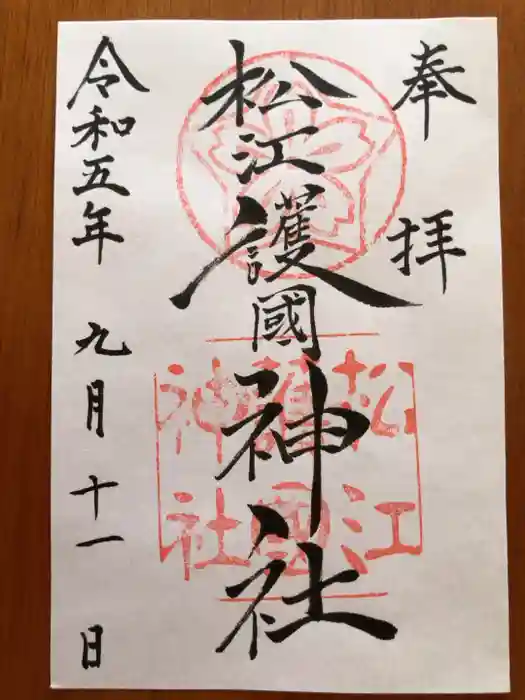 奉拝
松江護國神社
令和五年九月十一日
松江
護國
神社